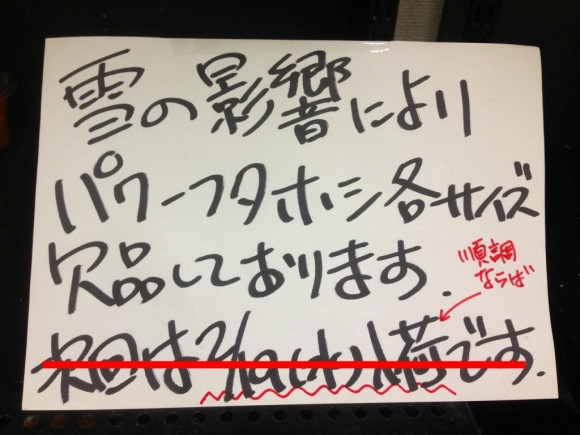 雪の影響により
パワーフタホシ各サイズ
欠品しております.
順調
ならば
次回は2/19(水)入荷です.